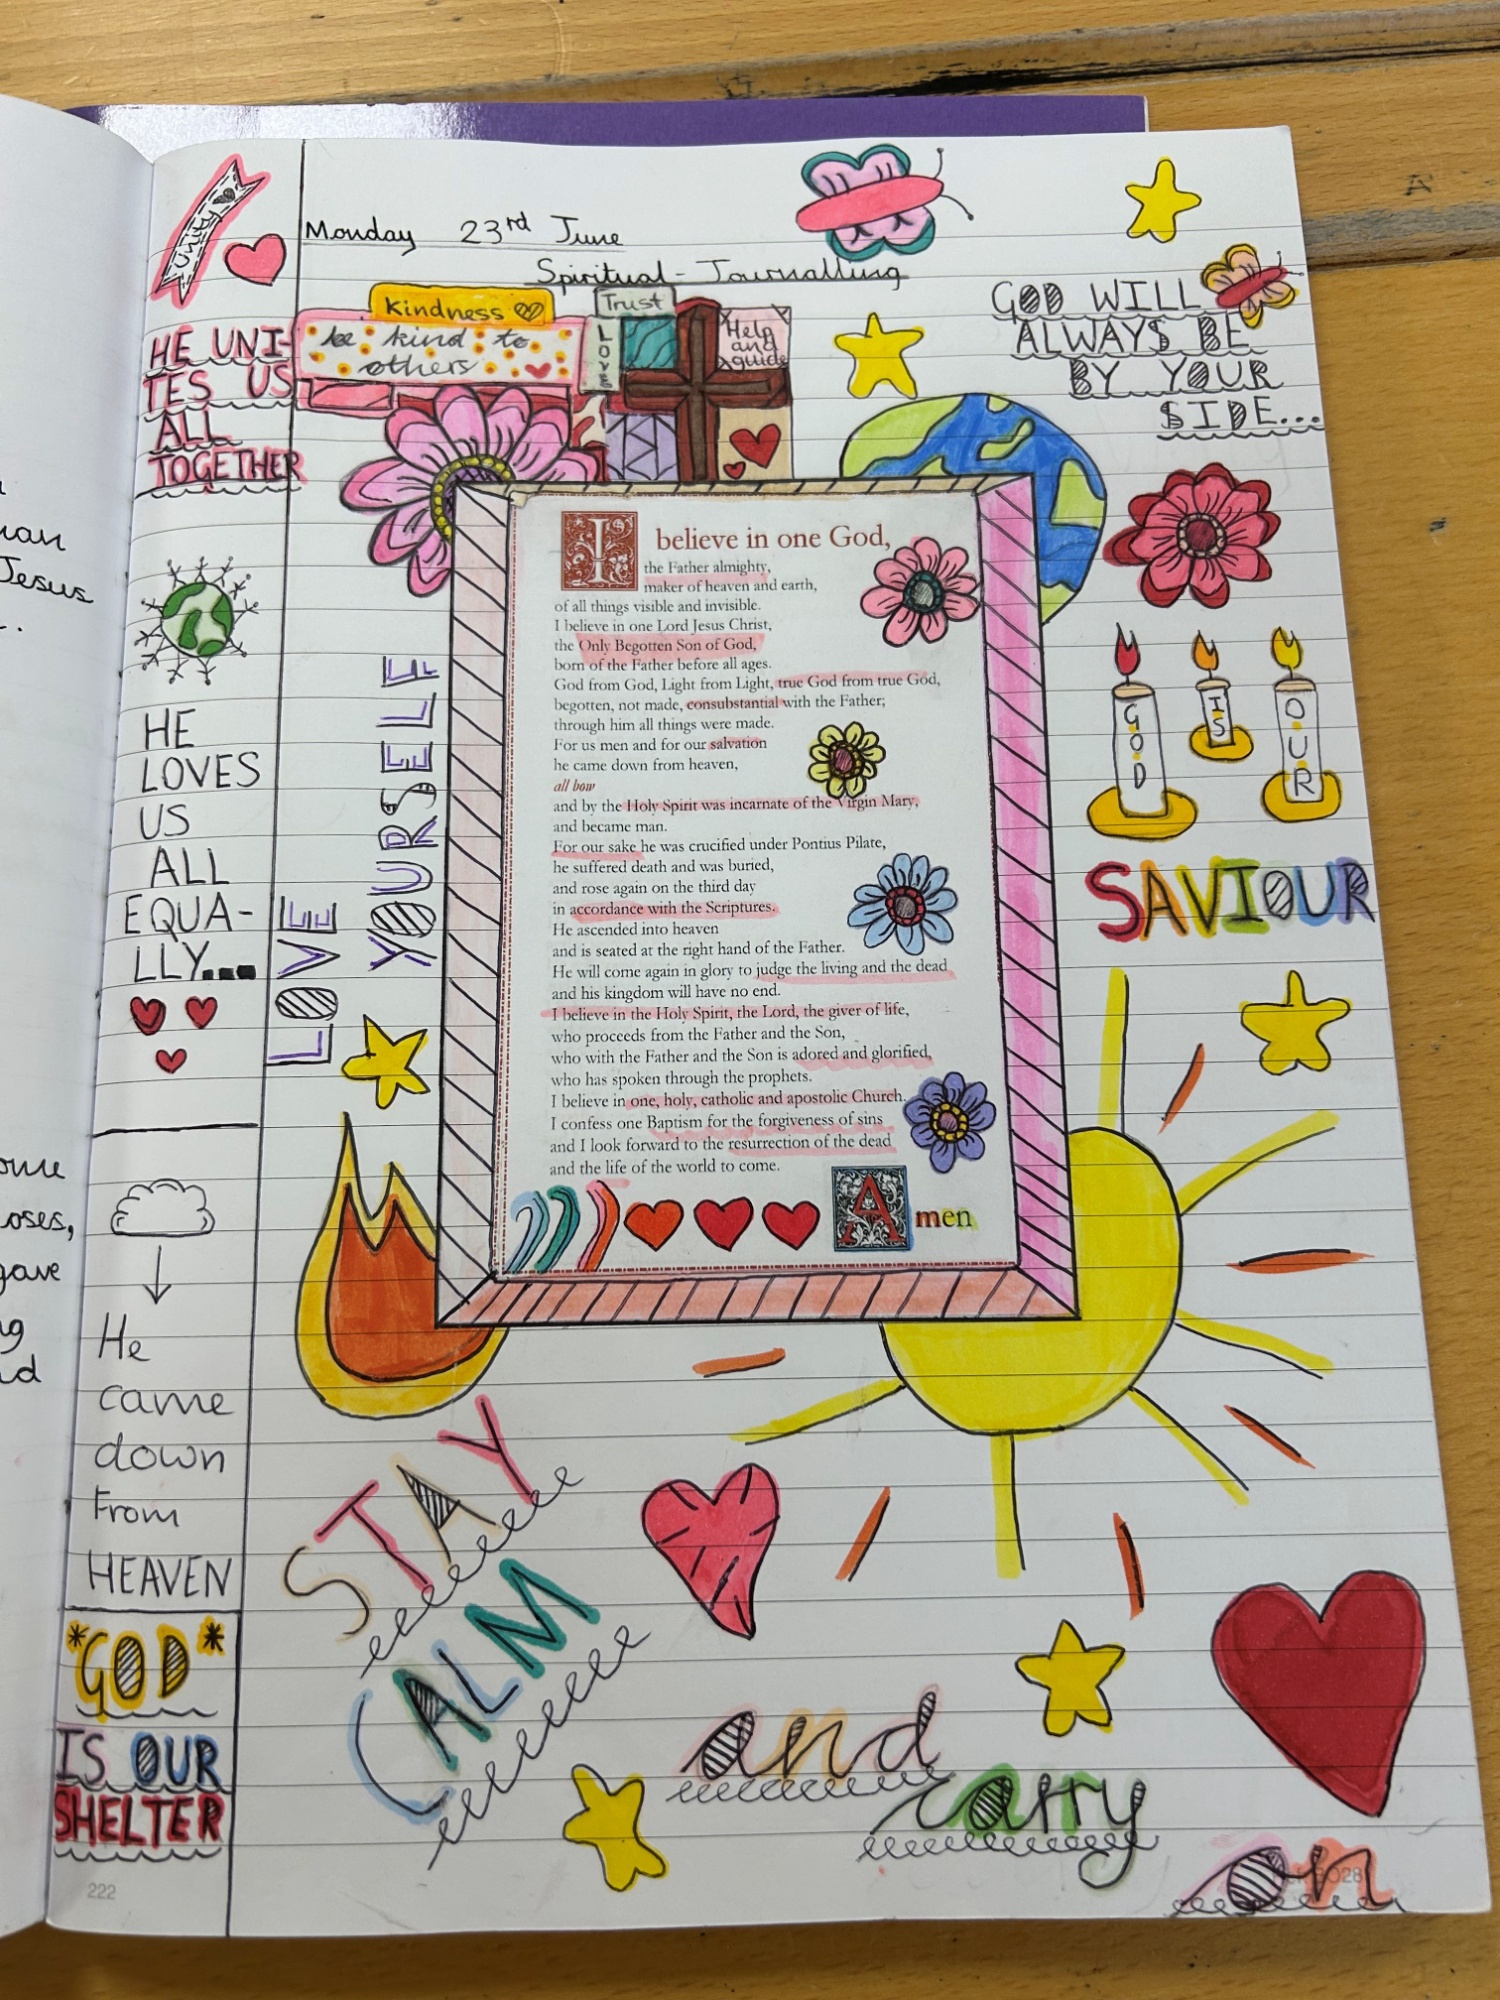 Monday 23rd June
Spiritual-Journalling
Unity
HE UNI-
TES US
ALL
TOGETHER
Kindness
be kind to
others
Trust
LOVE
Help
and
guide
GOD WILL
ALWAYS BE
BY YOUR
SIDE...
HE
LOVES
US
ALL
EQUA-
LLY...
LOVE
YOURSELF
I believe in one God,
the Father almighty,
maker of heaven and earth,
of all things visible and invisible.
I believe in one Lord Jesus Christ,
the Only Begotten Son of God,
born of the Father before all ages.
God from God, Light from Light, true God from true God,
begotten, not made, consubstantial with the Father;
through him all things were made.
For us men and for our salvation
he came down from heaven,
all bow
and by the Holy Spirit was incarnate of the Virgin Mary,
and became man.
For our sake he was crucified under Pontius Pilate,
he suffered death and was buried,
and rose again on the third day
in accordance with the Scriptures.
He ascended into heaven
and is seated at the right hand of the Father.
He will come again in glory to judge the living and the dead
and his kingdom will have no end.
I believe in the Holy Spirit, the Lord, the giver of life,
who proceeds from the Father and the Son,
who with the Father and the Son is adored and glorified,
who has spoken through the prophets.
I believe in one, holy, catholic and apostolic Church.
I confess one Baptism for the forgiveness of sins
and I look forward to the resurrection of the dead
and the life of the world to come.
Amen
GOD IS OUR
SAVIOUR
He
came
down
From
HEAVEN
*GOD*
IS OUR
SHELTER
STAY
CALM
and
carry
on
222
Jesus